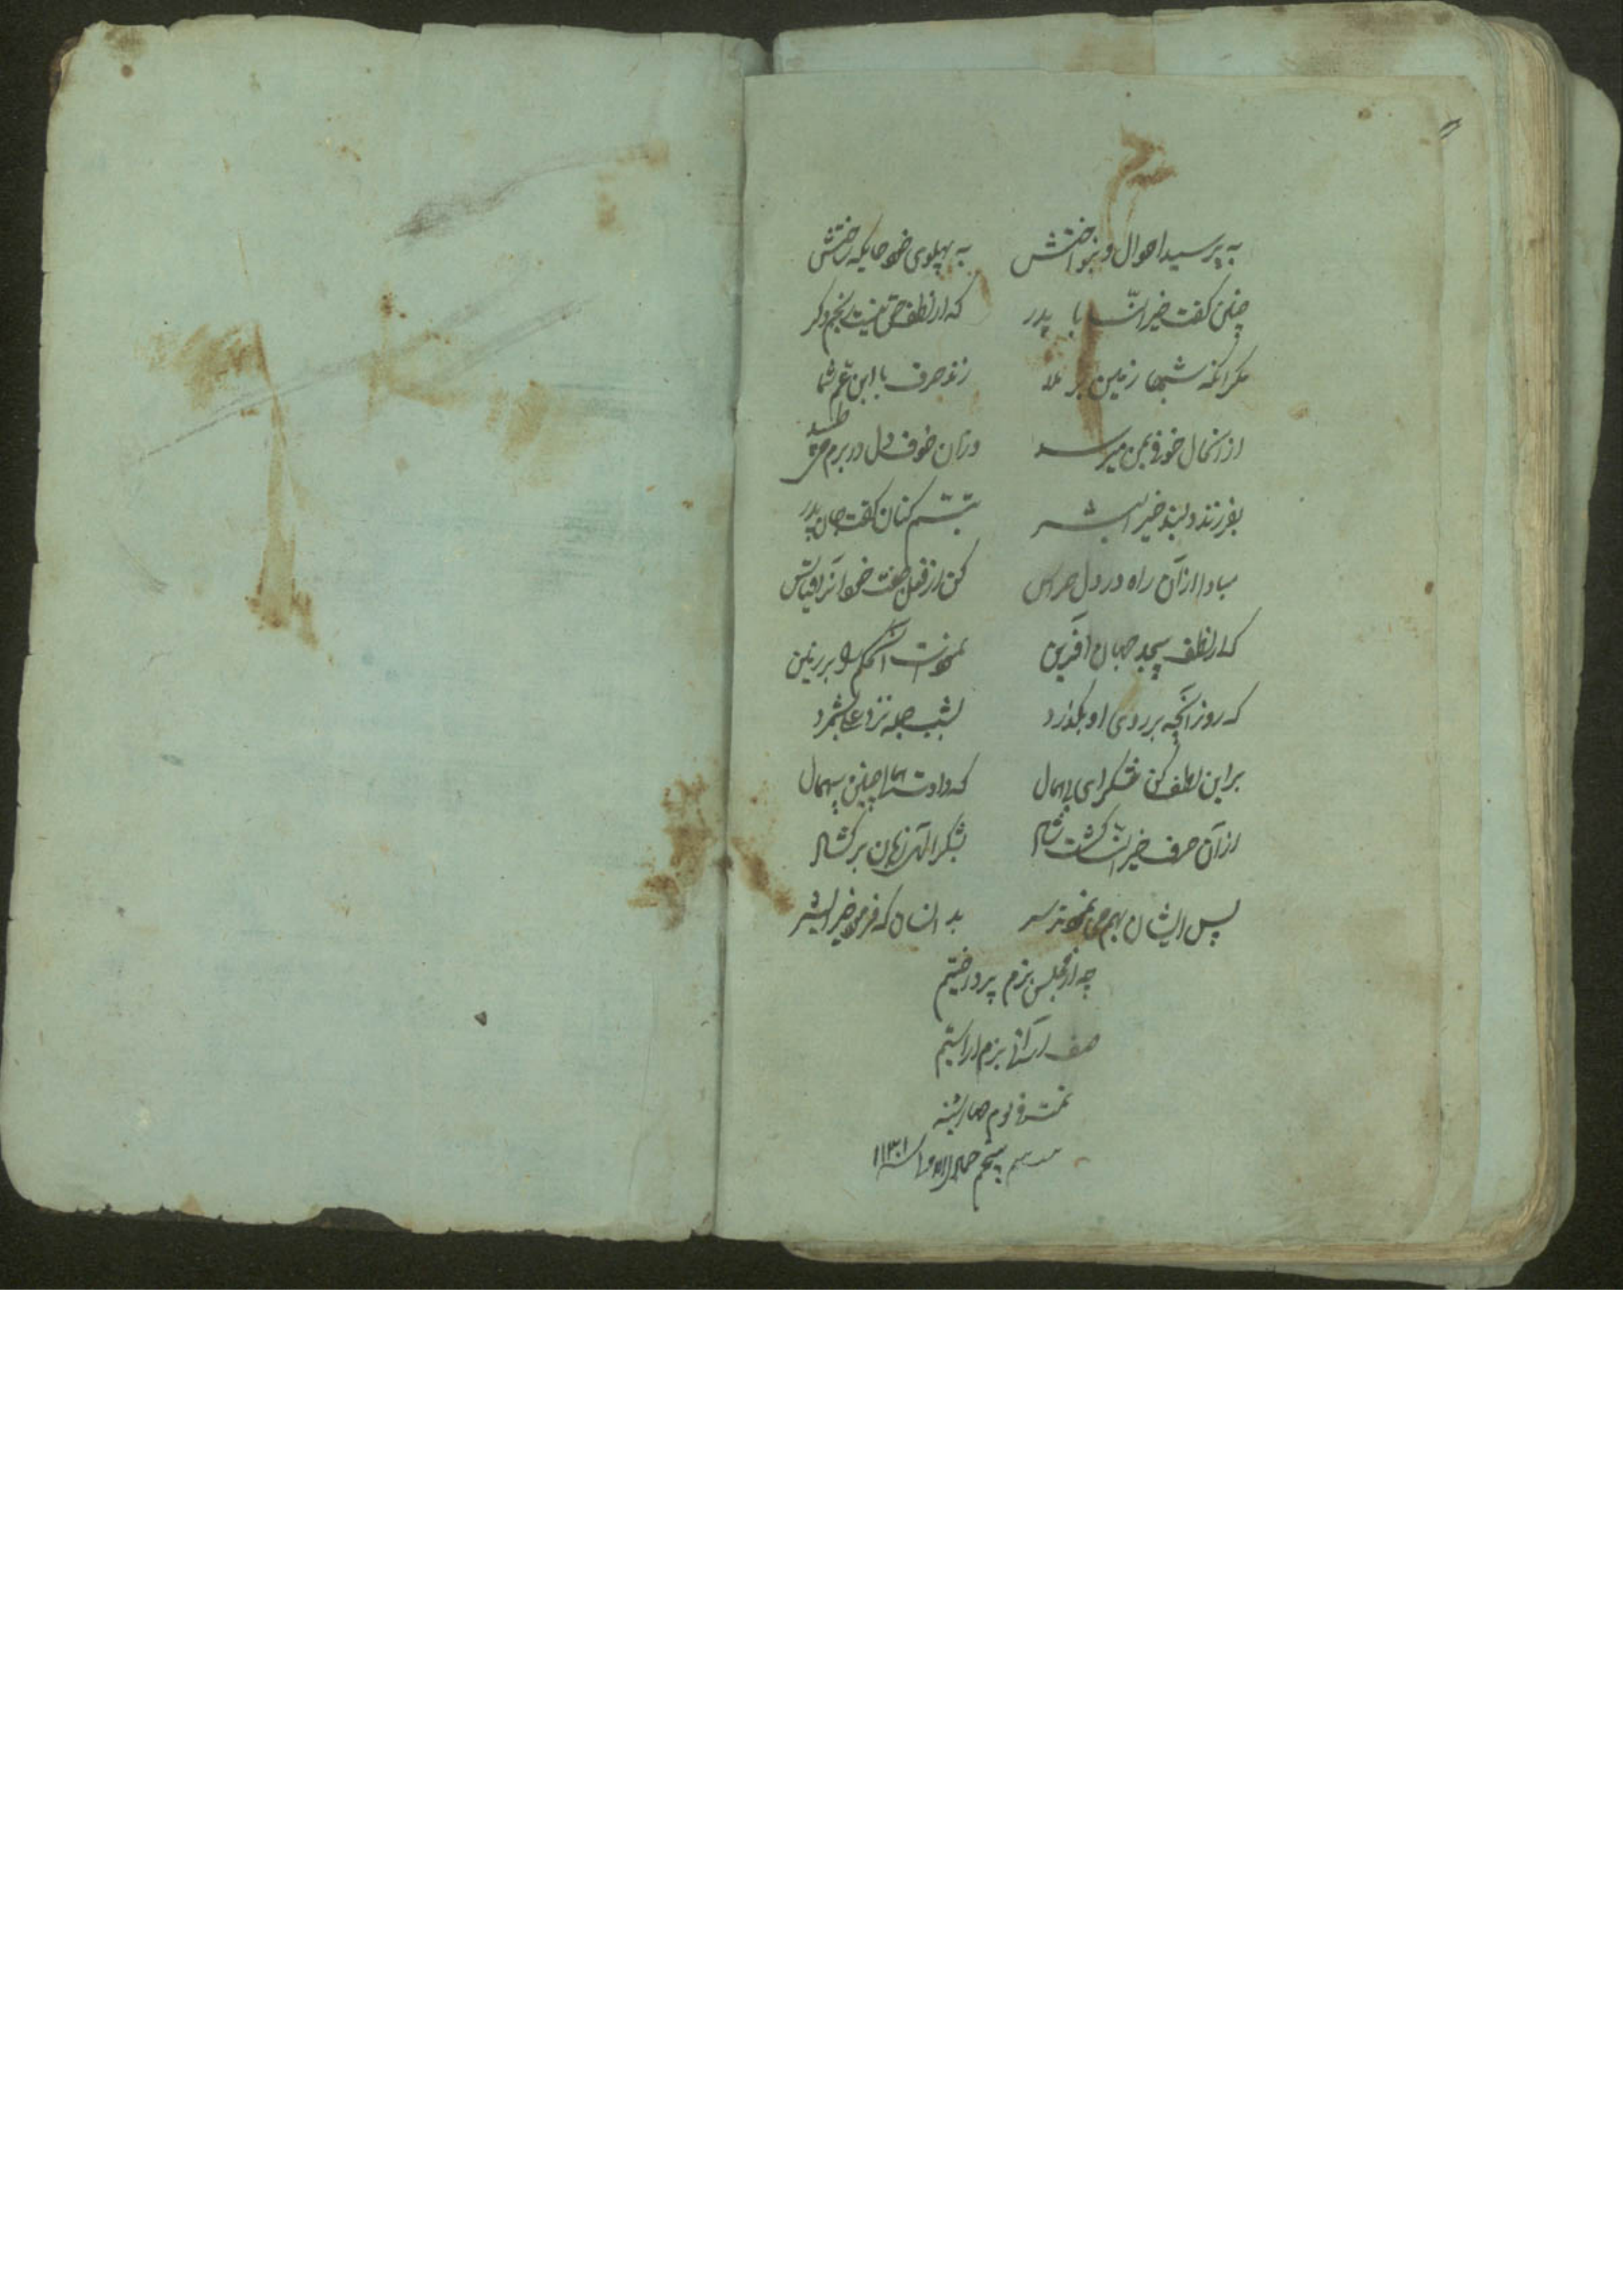 به پرسید احوال و بنواختش به پهلوی خود جایگه ساختش
چنین گفت خیر النسا با پدر که از لطف حق نیست رنجم دگر
مگر آنکه شبها زمین بر ملا زند حرف با ابن عم شما
از آنحال خوفی بمن میرسد وزان خوف دل در برم می طپد
بفرزند دلبند خیر البشر تبسم کنان گفت جان پدر
مبادا از آن راه در دل هراس کن از فضل جفت خود آنرا قیاس
که از لطف بیحد جهان آفرین نمودست را بر زمین
که روز آنچه بر روی او بگذرد بشب جمله نزد علی بشمرد
بر این لطف کن شکر ای بیهمال که دادت خدا چنین بیهمال
از آن حرف خیر النسا گشت شاد بشکر الهی زبان بر گشاد
پس ایشان بهم می نمودند سر بد انسان که فرمود خیر البشر
چه از مجلس بزم پرداختیم
صف آرائی بزم آراستیم
تمت فی یوم چهارشنبه
پنجم جمادی الاول سنه ۱۱۳۰۱